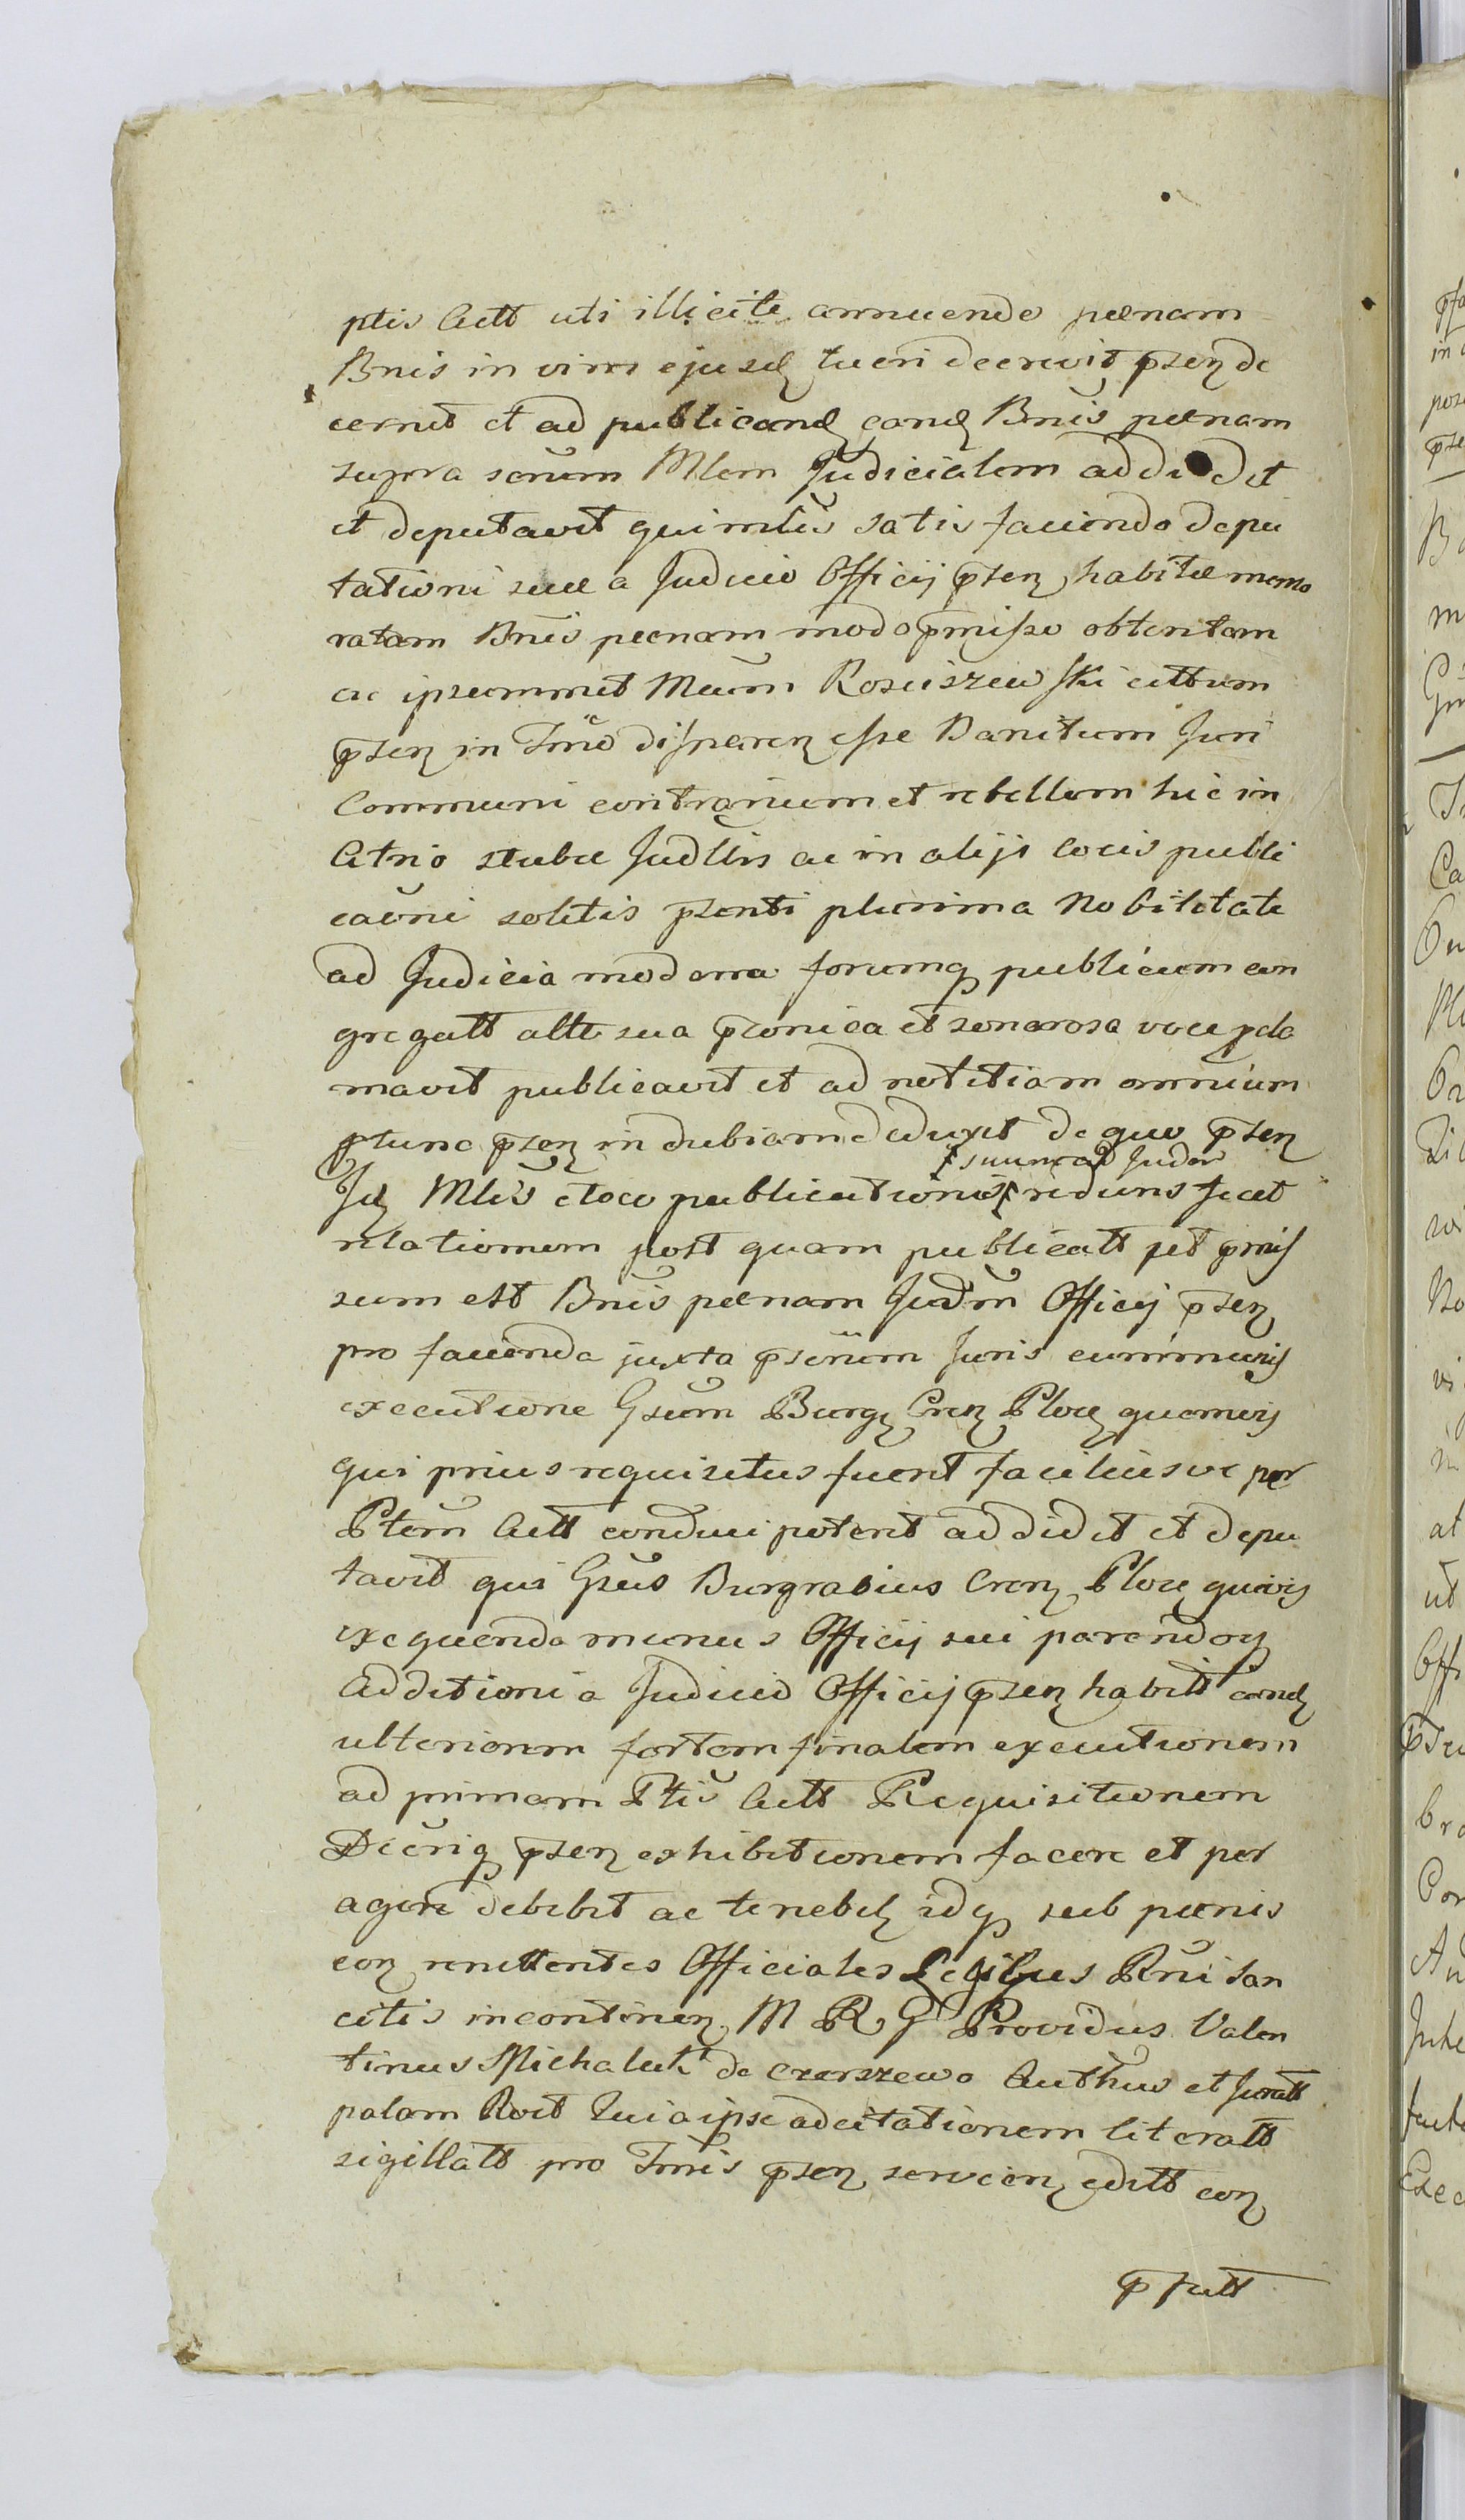 ptis Actt uti illicite annuendo pœnam
Bnis in vim ejusd tueri decrevit psen de
cernit et ad publicand eand Bnis pœnam
supra scrum Mlem Judicialem addidit
et deputavit qui mlis satis faciendo depu
tationi suæ a Judicio Officij psen habitæ memo
ratam Bnis pœnam modo pmisso obtentam
ac ipsemmet Mcum Rosciszewski cittum
psen in Tmo disparen esse Banitum Juri
Communi contrarium et rebellem hic in
Atrio stubæ Judllis ac in alijs locis publi
caoni solitis psenti plurima Nobilitate
ad Judicia moderna forumq publicum con
gregatt alta sua pconica et sonorosa voce pcla
mavit publicavit et ad notitiam omnium
ptunc psen indubiam deduxit de quo psen
suum ad Judm
Id Mlis e loco publicationis rediens fecit
relationem post quam publicatt put pmis
sum est Bnis pœnam Judm Officij psen
pro facienda juxta pscrium Juris communis
executione Gsum Burg Cren Ploc quemvis
qui prius requisitus fuerit faciliusve per
Ptem Actt conduci poterit addidit et depu
tavit qui Gsus Burgrabius Cren Ploc quivis
exequendo munus Officij sui parendoq
Additioni a Judicio Officij psen habitt eand
ulteriorem fortem finalem executionem
ad primam Ptis Actt Requisitionem
Decriq psen exhibitionem facere et per
agere debebit ac tenebit idq sub pœnis
con renittentes Officiales Legibus Rni san
citis incontinen M R G Providus Valen
tinus Michalak de Czerszewo Authus et Juratt
palam Rvit Quia ipse ad citationem literatt
sigillatt pro Tmis psen servien editt con
pfatt